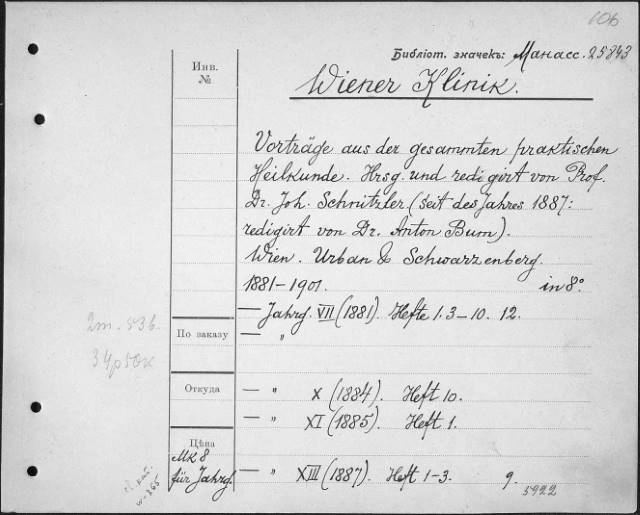 106
Библіот. значекъ: Манасс. 25843
Инв. №
Wiener Klinik.
Vorträge aus der gesammten praktischen
Heilkunde. Hrsg. und redigirt von Prof.
Dr. Joh. Schnitzler (seit des Jahres 1887:
redigirt von Dr. Anton Bum).
Wien. Urban & Schwarzenberg.
1881-1901. in 8°
— Jahrg. VII (1881). Hefte 1. 3-10. 12.
По заказу
— "
Откуда
— " X (1884). Heft 10.
— " XI (1885). Heft 1.
Цѣна
MK 8
für Jahrg.
— " XIII (1887). Heft 1-3. 9.
5922